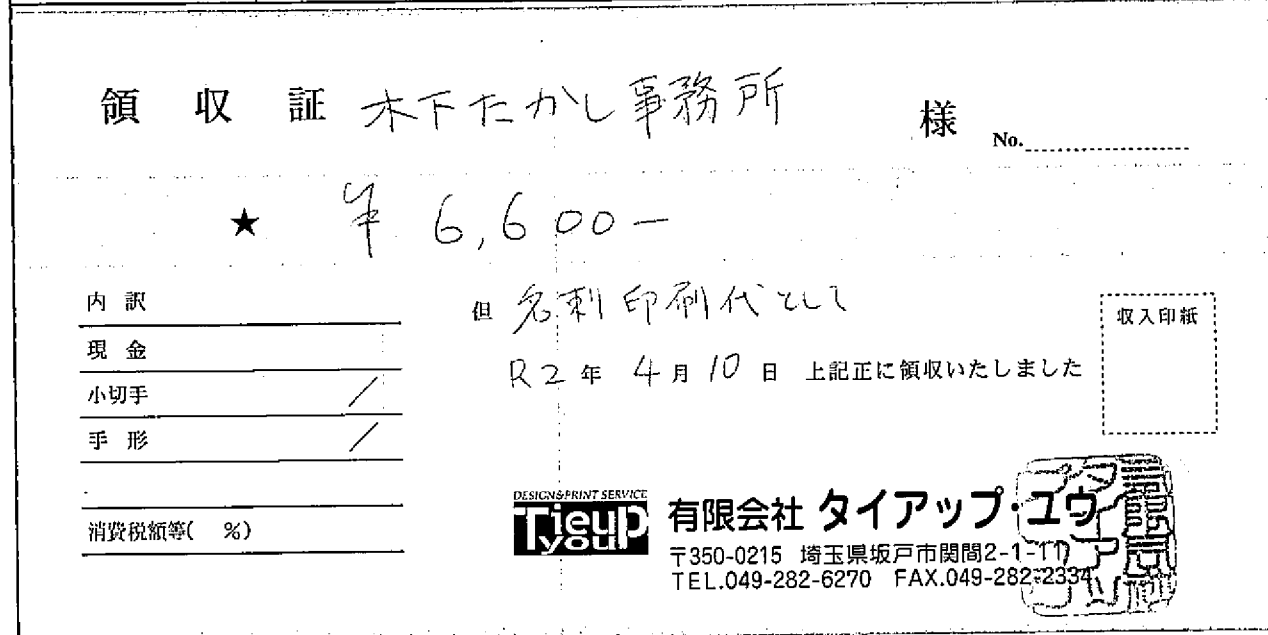 領 収 証 木下たかし事務所 様 No.
★ ¥ 6,600-
内 訳
現 金
小切手 /
手 形 /
消費税額等( %)
但 名刺印刷代として
R2年 4月10日 上記正に領収いたしました
収入印紙
DESIGN&PRINT SERVICE
Tieup
you
有限会社 タイアップ・ユウ
〒350-0215 埼玉県坂戸市関間2-1-11
TEL.049-282-6270 FAX.049-282-2334